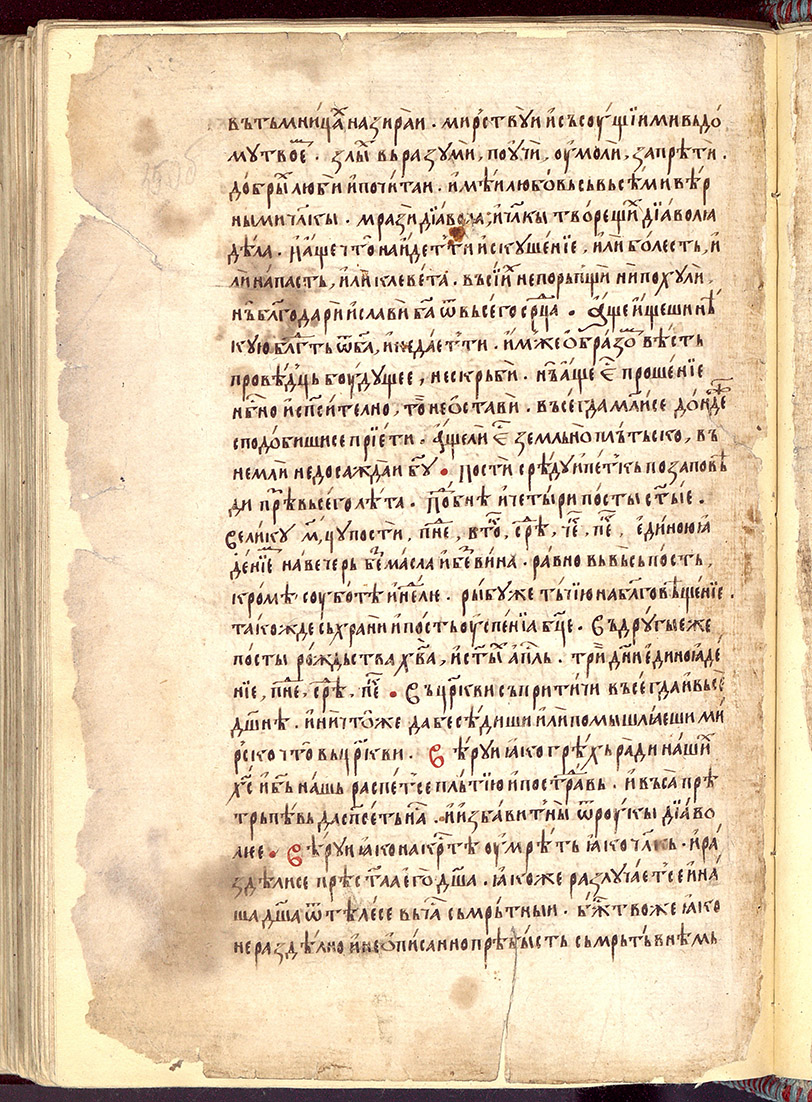 вътьмни́цах назираи . мирствꙋи и съсоу́щїими въдо́
мꙋтвое҆м . злыⷯ въразꙋми , поꙋчи , ѹмоли , запрѣти .
до́брыⷯ люби и почитаи . имѣи любовь съ вьсѣми вѣр
ными члкы . мрази дїавола , и члкы творещиⷯ дїаволꙗ
дѣла . и аще что найдет ти искꙋшенїе , или болесть , и
ли напасть , или клевета . въ сиⷯ непорьпщи ни похꙋли ,
нь благодари и слави ба ѿ въсего срⷣца . Аще ищеши нѣ
кꙋю блгⷣть ѿ ба , и не дает ти . имже образоⷨ вѣсть
провѣдць боудꙋщее , не скрьби . нь аще еⷭ прошенїе
нꙋжно и спсително , то не остави . въсегда молисе дондⷤе
сподобишисе прїети . Аще ли еⷭ земльно плътьско , въ
немли недосаждаи бꙋ . Пости срѣдꙋ и петкь по заповѣ
ди прѣвьсего лѣта . Поⷣбнѣ и четыри посты стые .
Великꙋ м҃ , цꙋ пости , пнⷣе , втоⷬ , срⷣѣ , чеⷮ , пеⷮ , единою ꙗ
денїе на вечерь беⷥ масла и беⷥ вина . равно въ вьсь пость ,
кромѣ соуботѣ и нелю . рыбꙋ же тьчїю на благовѣщенїе .
такожде съхрани и пость оуспенїа бце . Съ дрꙋгые же
посты рождьства хва , и стыⷯ апⷭль . три дни единою ꙗде
нїе , пнⷣе , срⷣѣ , пеⷮ . Съ црькви съ притичи въсегда и вьсе
дшнѣ . и ничтоже да беседиши или помышлꙗеши ми
рско что въ црькви . Вѣрꙋи ꙗко грѣхь ради нашиⷯ
хс и бь нашь распетсе пльтїю и пострⷣавь . и въса прѣ
трьпѣвь да спсеть наⷭ . и избавит ны ѿ рꙋкы дїаво
лѥ . Вѣрꙋи ꙗко на крⷭтѣ оумрѣть ꙗко члкь . и ра
здѣлисе прѣстаа его дша . ꙗкоже разлꙋчаетсе и на
ша дша ѿ телесе въ чаⷭ съмрьтныи . бжⷭтво же ꙗко
нераздѣлно и неописанно прѣбысть съмрьть внѣмь